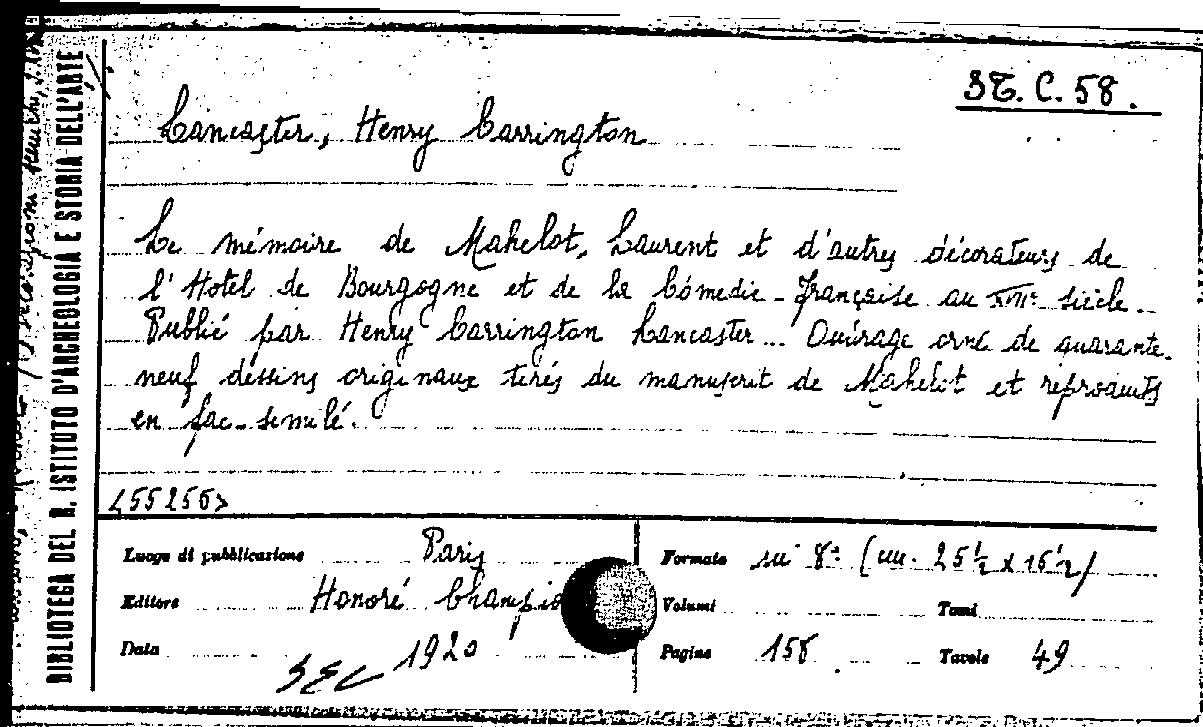 BIBLIOTECA DEL R. ISTITUTO D'ARCHEOLOGIA E STORIA DELL'ARTE
ST. C. 58.
Lancaster, Henry Carrington
Le mémoire de Mahelot, Laurent et d'autres décorateurs de
l'Hotel de Bourgogne et de la Comedie-française au XVIIe siècle.
Publié par Henry Carrington Lancaster... Ouvrage orné de quarante-
neuf dessins originaux tirés du manuscrit de Mahelot et reproduits
en fac-similé.
<55256>
Luogo di pubblicazione Paris
Editore Honoré Champio
Data 1920
Formato in 8° (cm. 25½ x 16½)
Volumi Tomi
Pagine 158
Tavole 49